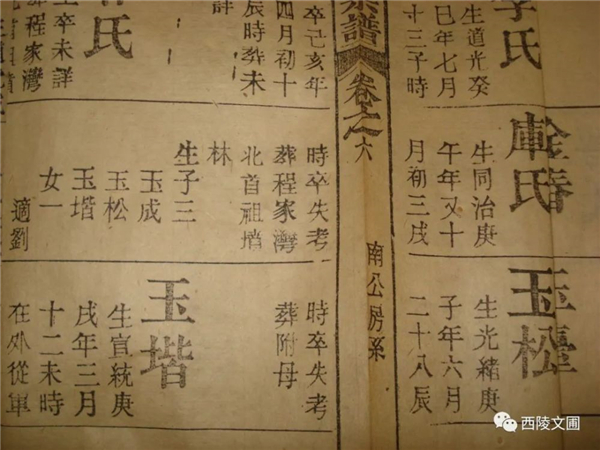 李氏
生道光癸
巳年七月
十三子時
生同治庚
午年又十
月初三戌
玉松
生光緒庚
子年六月
二十八辰
宗譜
卷之六
南公房系
卒己亥年
四月初十
辰時葬未
詳
氏
生卒未詳
葬程家灣
時卒失考
葬程家灣
北首祖墳
林
生子三
玉成
玉松
玉堦
女一
適劉
時卒失考
葬附母
玉堦
生宣統庚
戌年三月
十二未時
在外從軍
西陵文圃